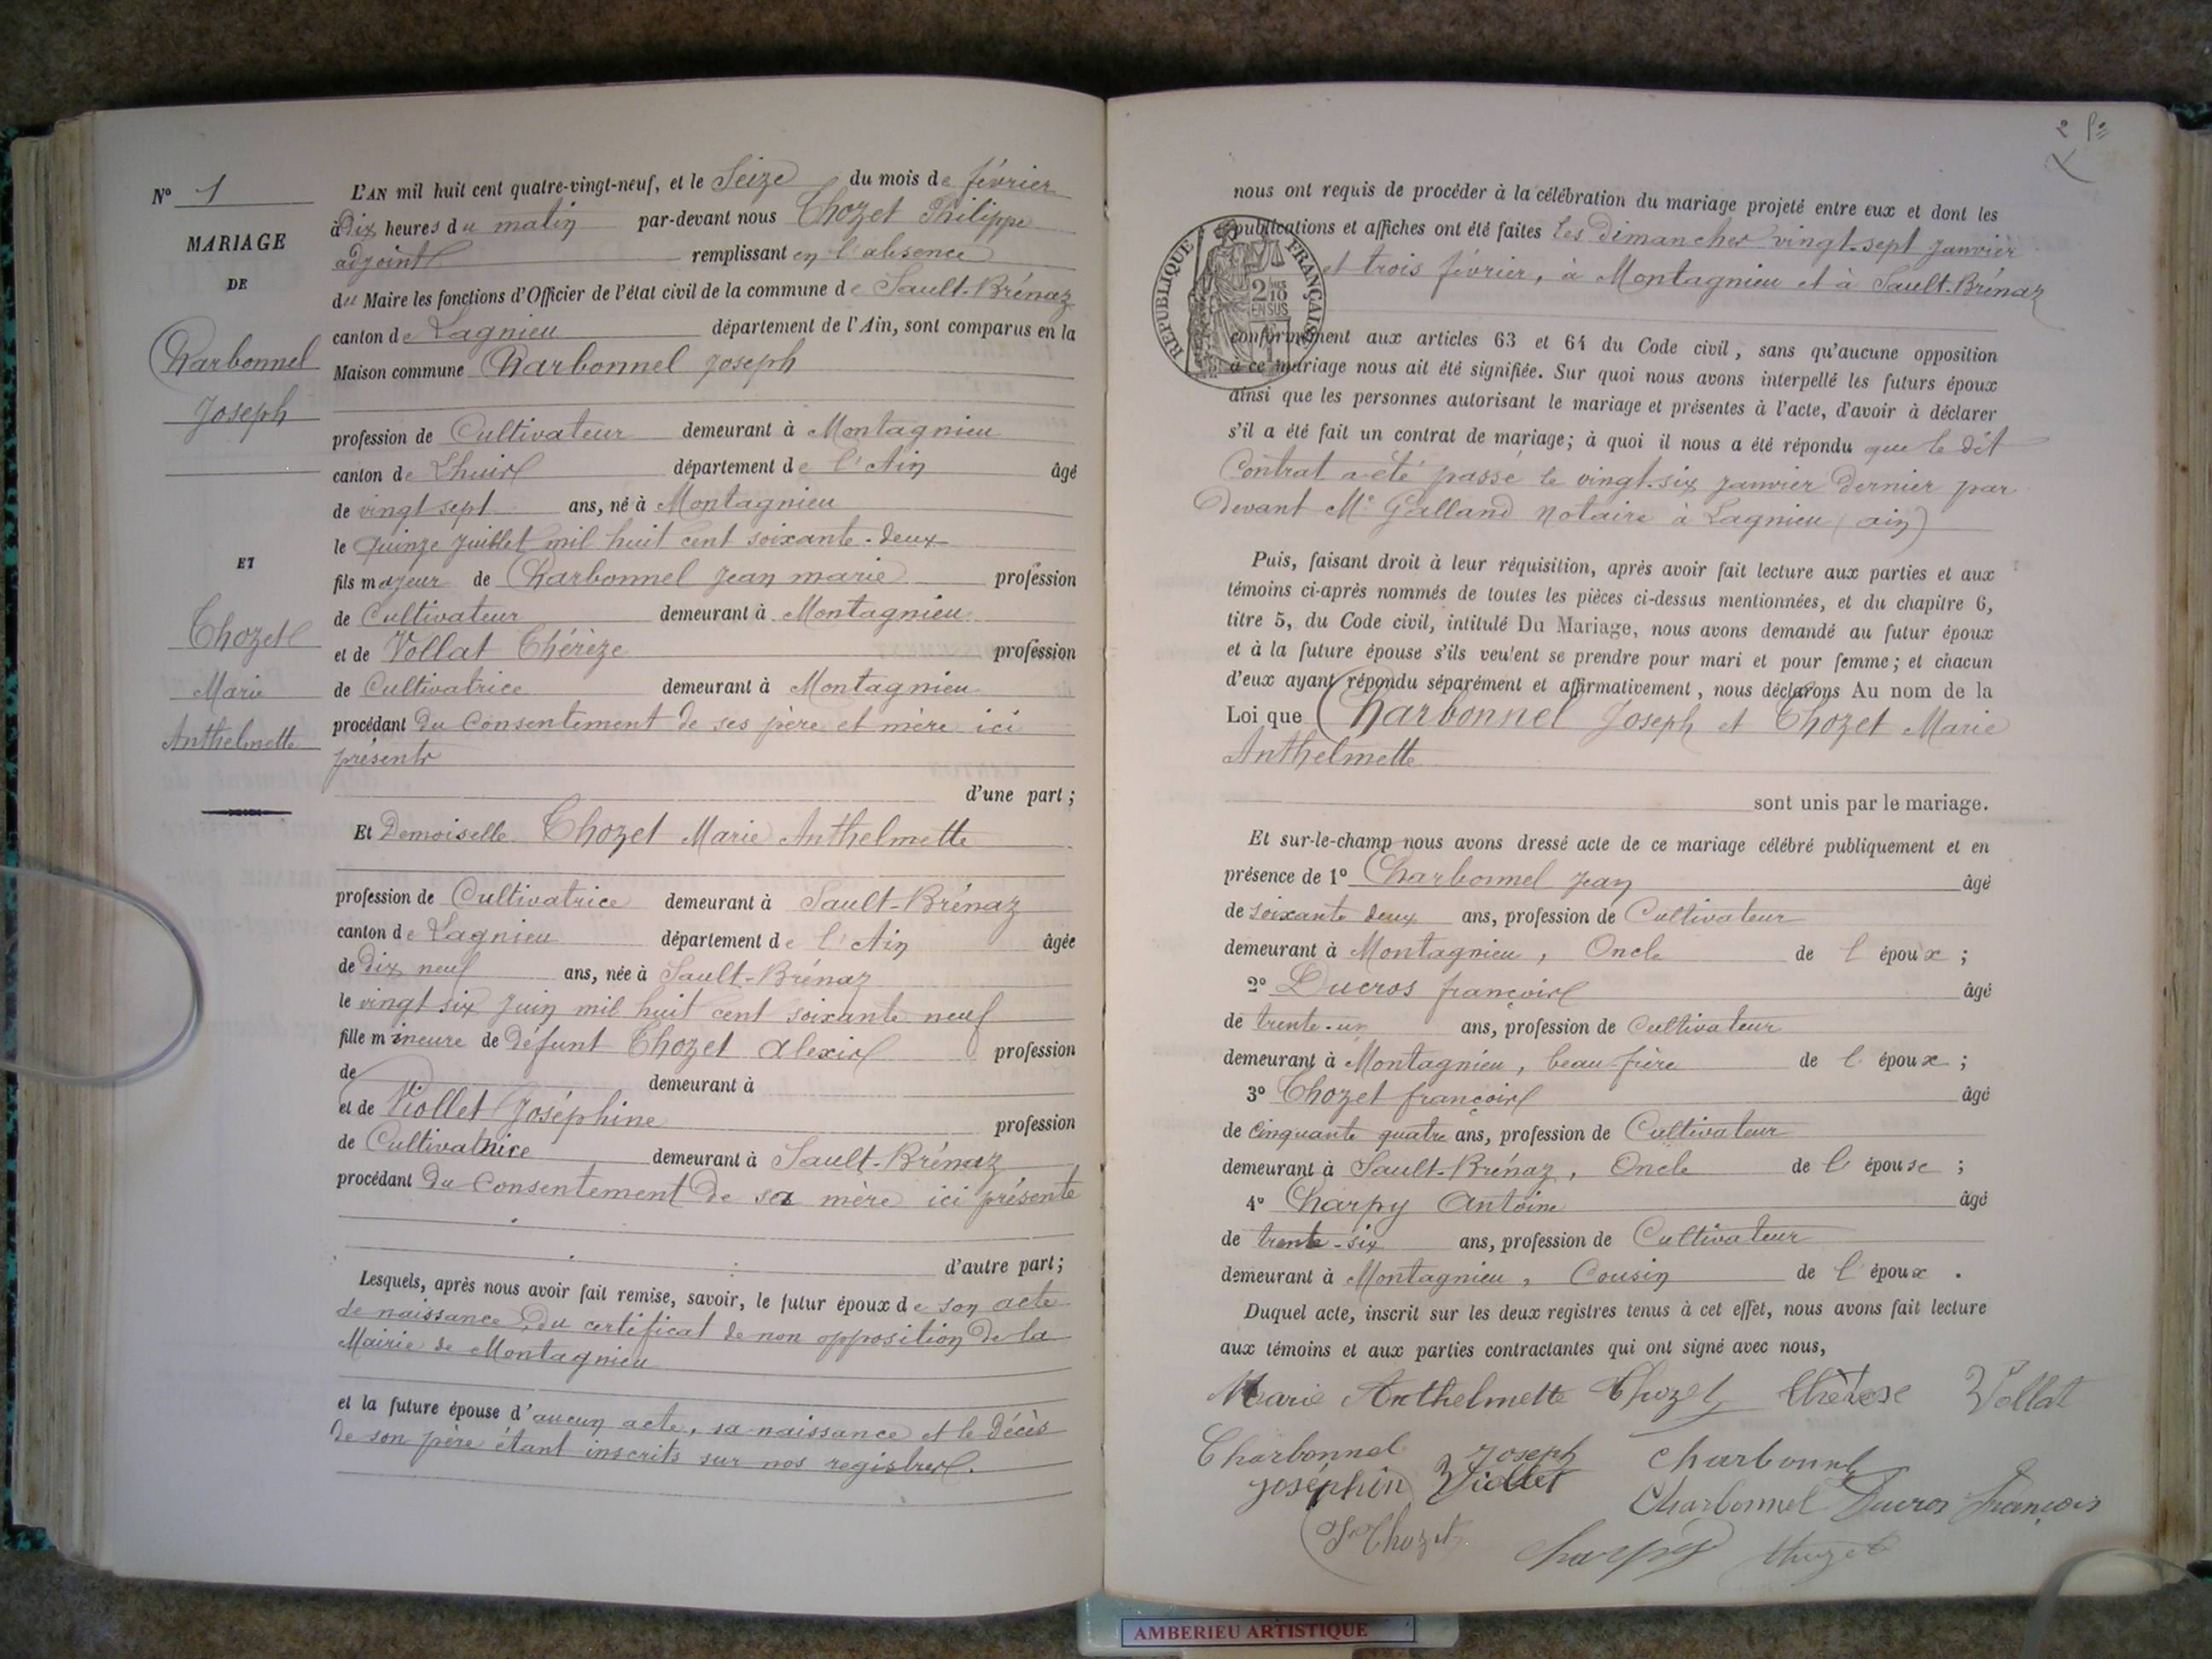 N° 1
MARIAGE
DE
Charbonnel
Joseph
ET
Thozet
Marie
Anthelmette
L'AN mil huit cent quatre-vingt-neuf, et le Seize du mois de février
à Dix heures du matin par-devant nous Thozet Philippe
adjoint remplissant en l'absence
du Maire les fonctions d'Officier de l'état civil de la commune de Sault-Brénaz
canton de Lagnieu département de l'Ain, sont comparus en la
Maison commune Charbonnel Joseph
profession de Cultivateur demeurant à Montagnieu
canton de Lhuis département de l'Ain âgé
de vingt sept ans, né à Montagnieu
le quinze juillet mil huit cent soixante-deux
fils majeur de Charbonnel Jean marie profession
de Cultivateur demeurant à Montagnieu
et de Vollat Thérèze profession
de Cultivatrice demeurant à Montagnieu
procédant du Consentement de ses père et mère ici
présents
d'une part ;
Et Demoiselle Thozet Marie Anthelmette
profession de Cultivatrice demeurant à Sault-Brénaz
canton de Lagnieu département de l'Ain âgée
de dix neuf ans, née à Sault-Brénaz
le vingt six Juin mil huit cent soixante neuf
fille mineure de défunt Thozet Alexis profession
de demeurant à
et de Viollet Joséphine profession
de Cultivatrice demeurant à Sault-Brénaz
procédant du Consentement de sa mère ici présente
d'autre part ;
Lesquels, après nous avoir fait remise, savoir, le futur époux de son acte
de naissance, du certificat de non opposition de la
Mairie de Montagnieu
et la future épouse d'aucun acte, sa naissance et le Décès
de son père étant inscrits sur nos registres.
2
nous ont requis de procéder à la célébration du mariage projeté entre eux et dont les
publications et affiches ont été faites les dimanches vingt-sept janvier
et trois février, à Montagnieu et à Sault-Brénaz
RÉPUBLIQUE FRANÇAISE
2/10 EN SUS
conformément aux articles 63 et 64 du Code civil, sans qu'aucune opposition
à ce mariage nous ait été signifiée. Sur quoi nous avons interpellé les futurs époux
ainsi que les personnes autorisant le mariage et présentes à l'acte, d'avoir à déclarer
s'il a été fait un contrat de mariage; à quoi il nous a été répondu que le dit
Contrat a été passé le vingt-six janvier dernier par
devant Me Galland Notaire à Lagnieu (ain)
Puis, faisant droit à leur réquisition, après avoir fait lecture aux parties et aux
témoins ci-après nommés de toutes les pièces ci-dessus mentionnées, et du chapitre 6,
titre 5, du Code civil, intitulé Du Mariage, nous avons demandé au futur époux
et à la future épouse s'ils veulent se prendre pour mari et pour femme; et chacun
d'eux ayant répondu séparément et affirmativement, nous déclarons Au nom de la
Loi que Charbonnel Joseph et Thozet Marie
Anthelmette
sont unis par le mariage.
Et sur-le-champ nous avons dressé acte de ce mariage célébré publiquement et en
présence de 1° Charbonnel Jean âgé
de soixante deux ans, profession de Cultivateur
demeurant à Montagnieu, Oncle de l'époux ;
2° Ducros françois âgé
de trente-un ans, profession de Cultivateur
demeurant à Montagnieu, beau-frère de l'époux ;
3° Thozet françois âgé
de Cinquante quatre ans, profession de Cultivateur
demeurant à Sault-Brénaz, Oncle de l'épouse ;
4° Charpy Antoine âgé
de trente-six ans, profession de Cultivateur
demeurant à Montagnieu, Cousin de l'époux .
Duquel acte, inscrit sur les deux registres tenus à cet effet, nous avons fait lecture
aux témoins et aux parties contractantes qui ont signé avec nous,
Marie Anthelmette Thozet thèrese Vollat
Charbonnel Joseph charbonnel
Joséphine Viollet Charbonnel Ducros François
Thozet Charpy thozet
AMBERIEU ARTISTIQUE